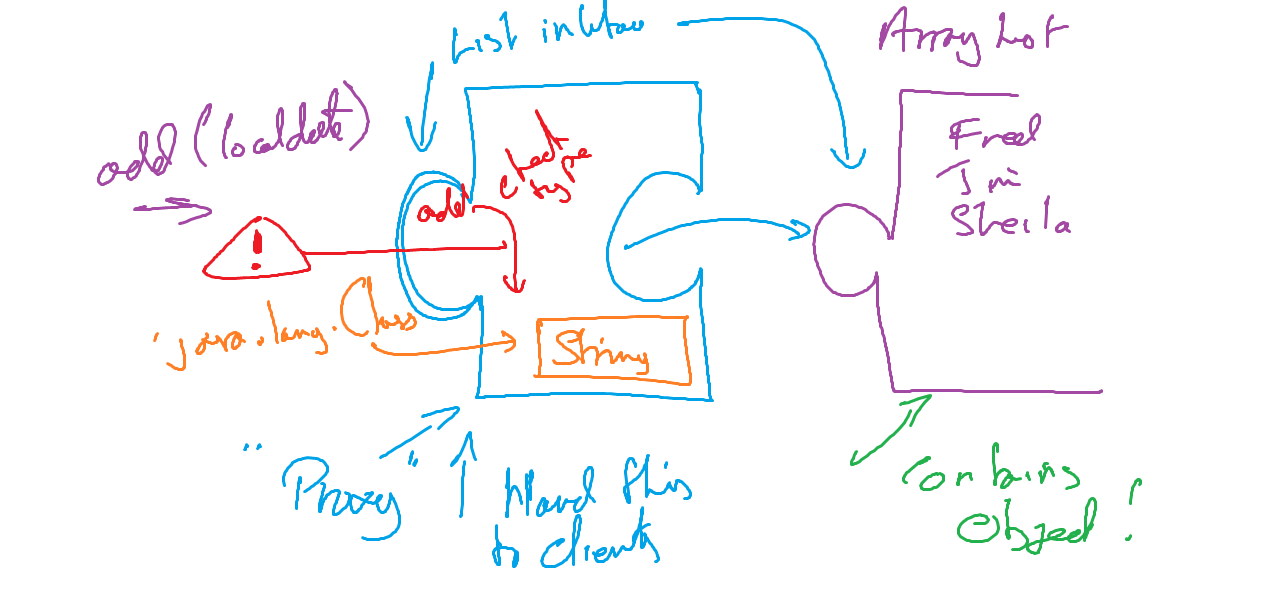 List interface
ArrayList
add(localdate)
Fred
Jim
Sheila
check
type
add
!
java.lang.Class
String
"Proxy"
Hand this
to clients
Contains
Object!